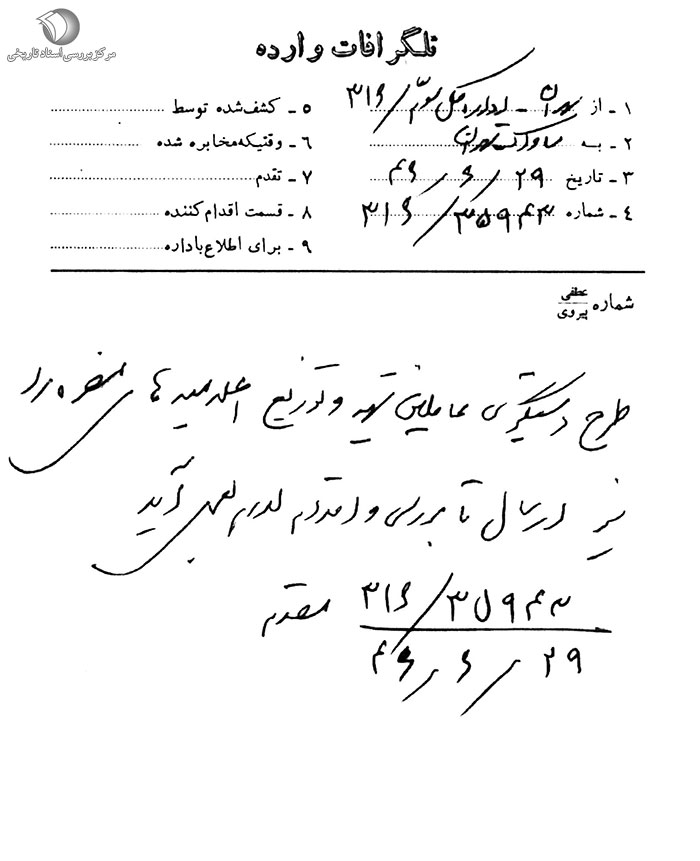 مرکز بررسی اسناد تاریخی
تلگرافات وارده
۱ - از تهران - اداره کل سوم / ۳۱۶
۲ - به ساواک تهران
۳ - تاریخ ۲۹ / ۶ / ۴۶
۴ - شماره ۳۵۹۴۳ / ۳۱۶
۵ - کشف شده توسط
۶ - وقتیکه مخابره شده
۷ - تقدم
۸ - قسمت اقدام کننده
۹ - برای اطلاع باداره
شماره عطفی / پیروی
طرح دستگیری عاملین تهیه و توزیع اعلامیه های مضره را
نیز ارسال تا بررسی و اقدام لازم بعمل آید
۳۵۹۴۳ / ۳۱۶ مقدم
۲۹ / ۶ / ۴۶